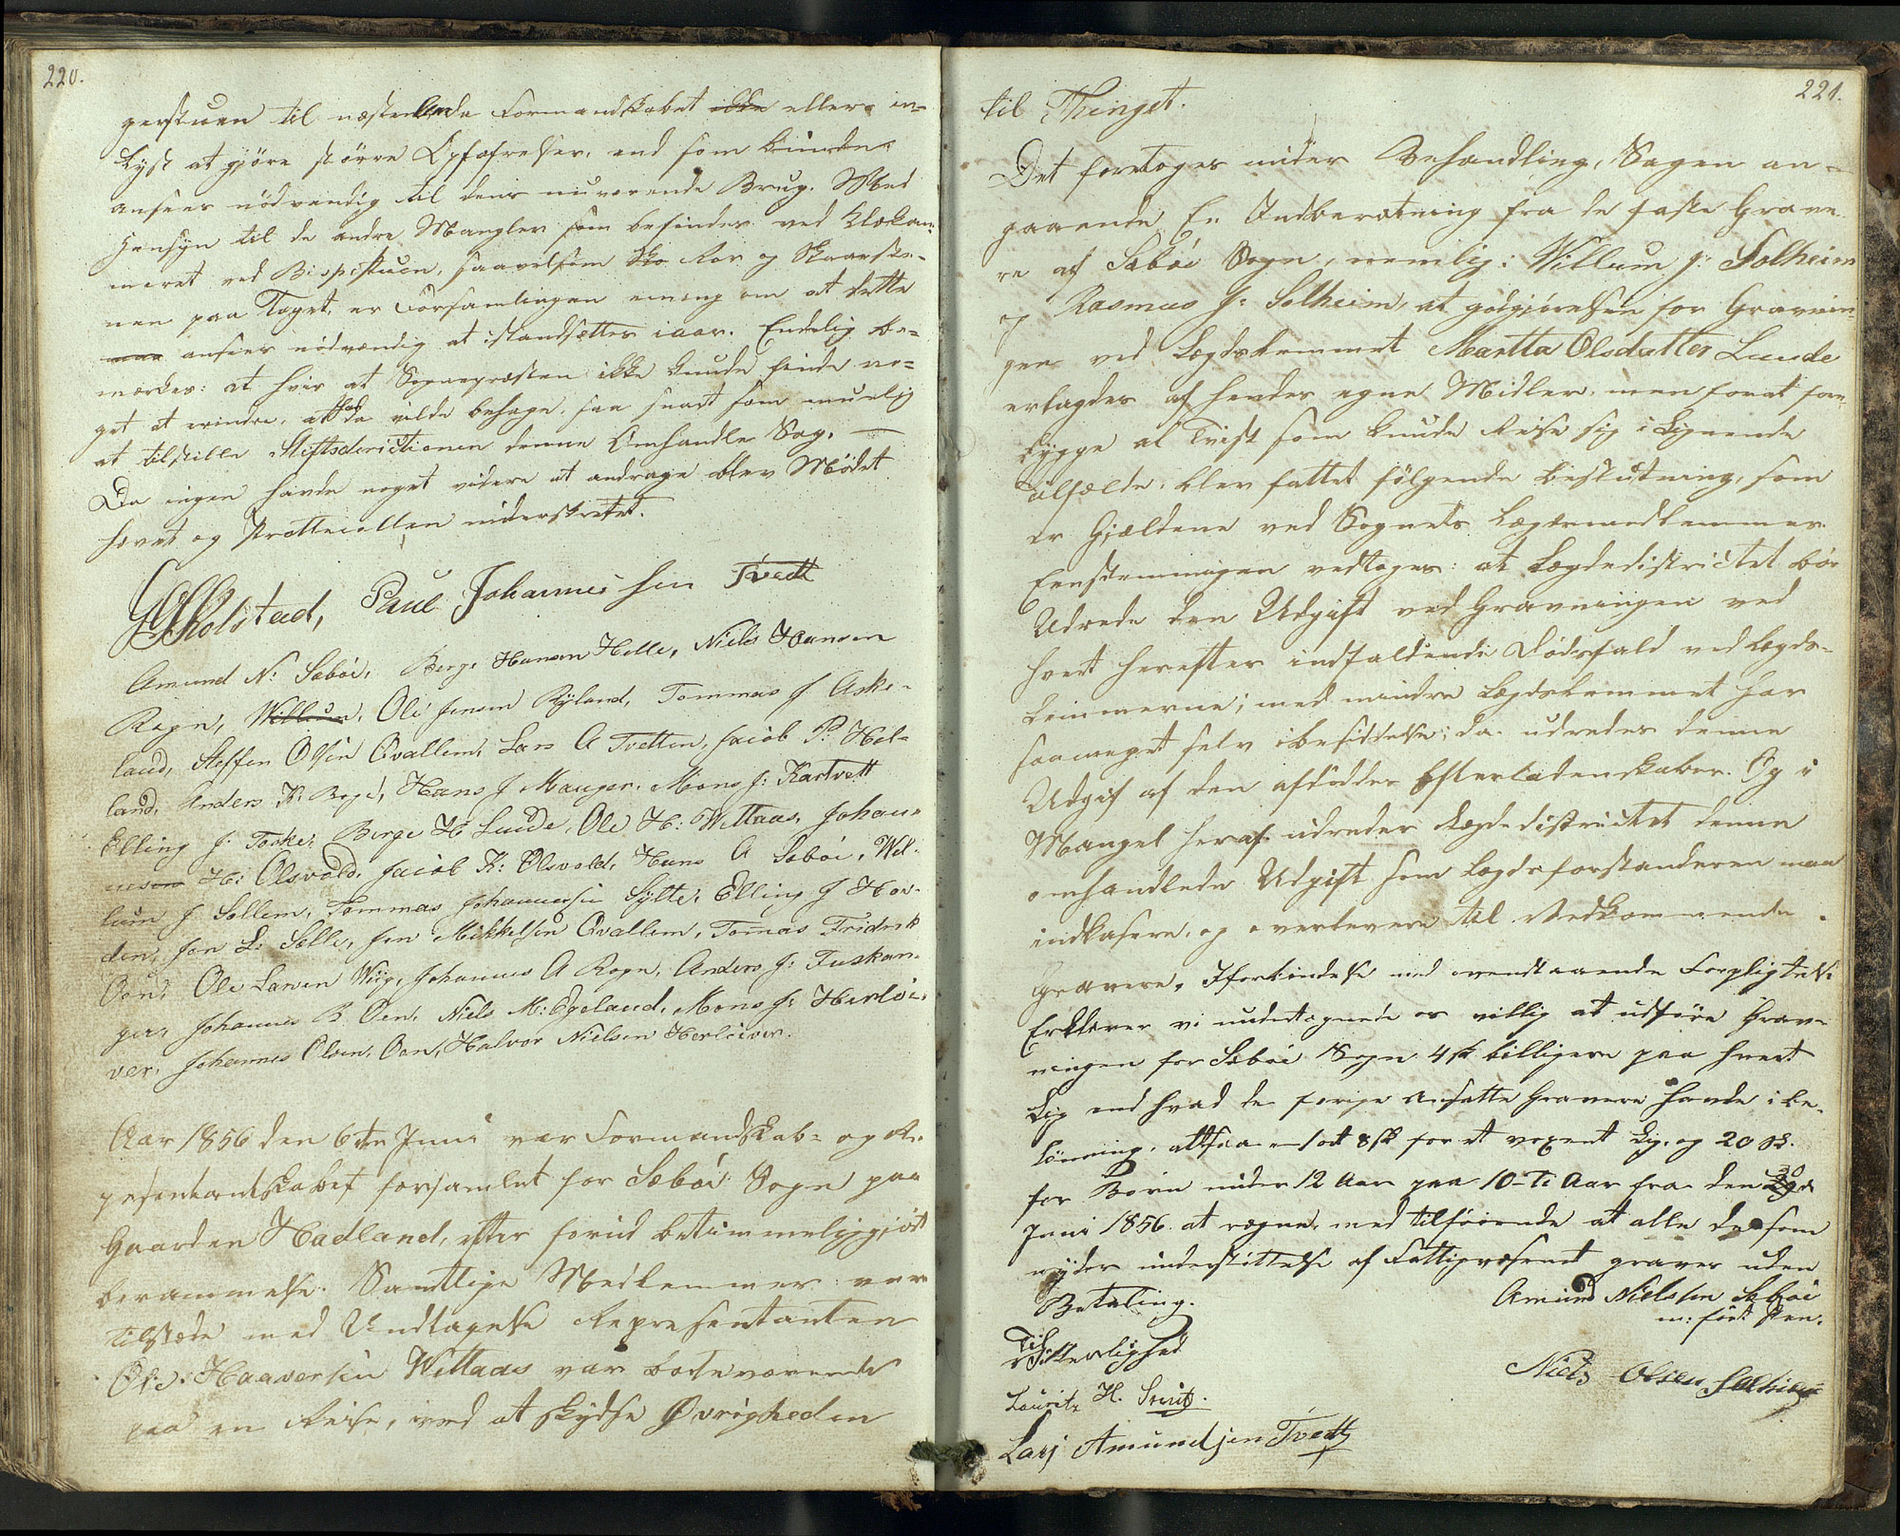 220.
gerstuen til næstenlende Formandskabet ikke eller in-
Lyst at gjöre större Opfofrelser, end som kunde
ansees nödvendig til dens nuværende Brug. Med
Hensyn til de andre Mangler som befindes ved Klokam-
meret ved Bispestuen, saavelsom Sko Rör og Skaarste-
nen paa Taget, er Forsamlingen eening om at dette
maa ansees nödvendig at istandsættes iaar. Endelig be-
mærkes: at hvis at Sognepræsten ikke kunde finde no-
get at erindre, at han da vilde behage, saa snart som muelig
at tilstille Stiftsderictionen denne Omhandle Sag. —
Da ingen havde noget videre at andrage blev Mödet
hævet og Prottecollen underskrevet.
Skolstad, Paul Johannessen Tvedt
Amund N: Sæböe, Berge Hansen Helle, Niels Hansen
Rogn, Willum, Ole Jensen Ryland, Tommas J Aske-
land, Steffen Olsen Qvallem, Lars A Tvetten, Jacob P: Hel-
land, Anders K: Boge, Hans J Manger, Mons J: Kartvett
Elling J: Toske, Berge H Lunde, Ole H: Wettaas, Johan-
nesen H: Olsvold, Jacob K: Olsvold, Hans A Sæböe, Wel-
lum J Sollem, Tommas Johannessen Sylte, Elling J Hor-
den, Jon L: Solle, Jon Mikkelsen Qvallem, Tomas Fridrik
Oen, Ole Larsen Wiig, Johannes A Rogn, Anders J: Tuskan-
ger, Johannes B Oen, Niels M: Egeland, Mons J: Herlöe-
ver, Johannes Olsen Oen, Halvor Nielsen Herlöever.
Aar 1856 den 6te Juni var Formandskab- og Re-
pesentantskabet forsamlet for Sæböe Sogn paa
Gaarden Hadland, efter forud betimmeligjort
berammelse. Samtlige Medlemmer var
tilstæde med Undtagelse Repræsentanten
Ole Haaversen Wettaas var borteværende
paa en Reise, ved at skydse Øvrigheden
221.
til Thinget.
Det foretoges under Behandling, Sagen an-
gaaende En Indberætning fra de faste Grave-
re af Sæböe Sogn, nemlig: Willum J: Solheim
og Rasmus J: Solheim, at godgjörelsen for Gravnin-
gen ved Lægdslemmet Martta Olsdatter Lunde
erlagdes af hendes egne Midler, men forat fore-
bygge al Tvist som kunde Reise sig i Lignende
Tilfælde, blev fattet fölgende beslutning, som
er Gjældene ved Sognets Lægdsmedlemmer.
Eenstemmigen vedtoges: at Lægdedistrictet bör
Udrede den Udgift ved Gravningen ved
hvert herefter indfaldende Dödsfald ved Lægds-
lemmerne; med mindre Lægdslemmet har
saameget selv ibesiddelse; da udredes denne
Udgif af den afdöddes Efterladenskaber. Og i
Mangel heraf udreder Lægdedistrictet denne
omhandlede Udgift som Lægdsforstanderen maa
indkasere, og overlevere til Vedkommende
Gravere. Iforbindelse med ovenstaaende Forpligtelse
Erklærer vi undertegnede os villig at udföre Grav-
ningen for Sæböe Sogn 4 sk billigere paa hvert
Lig end hvad de forige Ansatte Gravere havde i be-
lönning, altsaa 1 ort 8 sk for et voxent Lig, og 20 sk.
for Börn under 12 Aar paa 10-Ti Aar fra den
Juni 1856 at regne, med tilföiende at alle de som
nyder understöttelse af Fattigvæsenet graves uden
Betaling.
Amund Nielssen Sæböe
m: ført Pen.
Til
Vitterlighed
Niels Olsen Solheim
Lauritz H. Smit
Lars Amundsen Tvedt